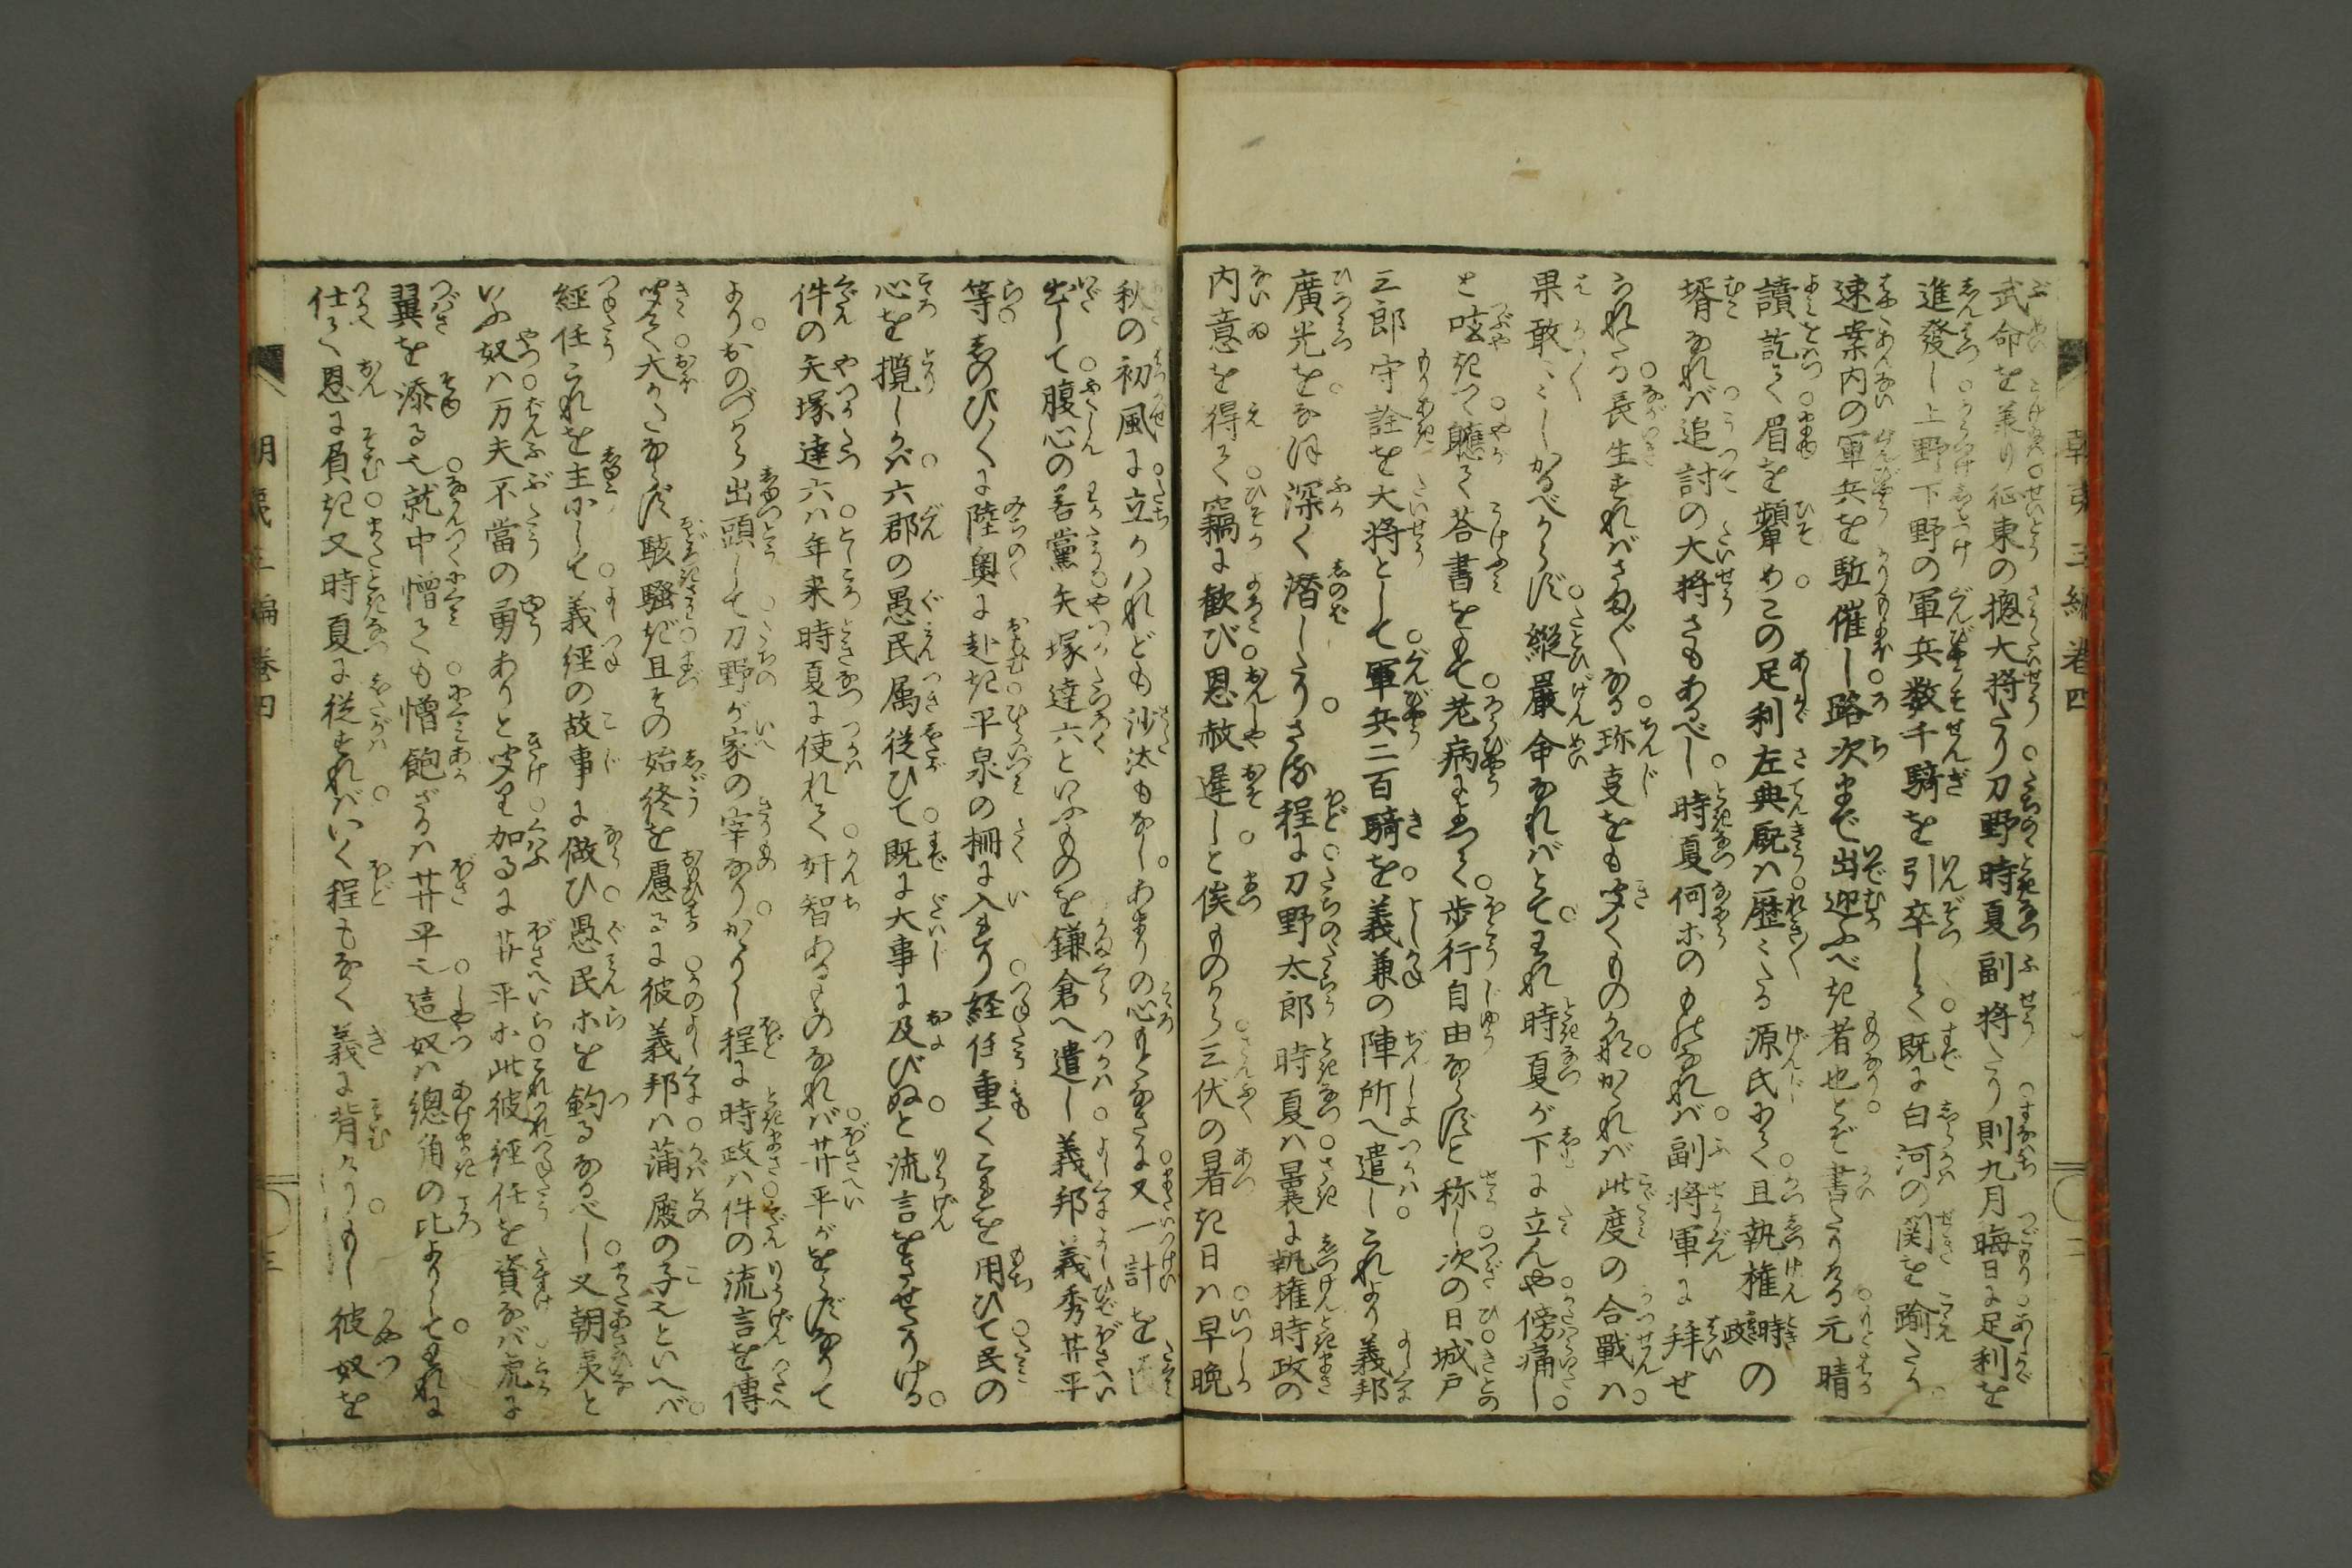 朝夷三編巻四
武命を義り征東の摠大将たり刀野時夏副将たり則九月晦日に足利を
進發し上野下野の軍兵数千騎を引卒して既に白河の関を踰たり
速案内の軍兵を駈催し路次まで出迎ふべき者也とぞ書たりける元晴
讀訖て眉を顰めこの足利左典厩は歴々たる源氏にて且執権時政の
壻なれば追討の大将さもあるべし時夏何ホのものなれば副将軍に拜せ
られたる長生すればさま〲なる珎事をも聞くものかなかゝれば此度の合戰は
果敢々々しかるべからず縦嚴命なればとてわれ時夏が下に立んや傍痛し
と呟きつゝ軈て荅書をもて老病によつて歩行自由ならずと称し次の日城戸
三郎守詮を大将として軍兵二百騎を義兼の陣所へ遣しこれより義邦
廣光をなほ深く潜したりさる程に刀野太郎時夏は曩に執権時政の
内意を得て竊に歓び恩赦遅しと俟ものから三伏の暑き日は早晩
秋の初風に立かはれども沙汰もなしあまりの心もとなさに又一計を
出して腹心の若黨矢塚達六といふものを鎌倉へ遣し義邦義秀廾平
等しのび〱に陸奥に赴き平泉の柵に入より経任重くこれを用ひて民の
心を攬しかば六郡の愚民属従ひて既に大事に及びぬと流言をさせたりける
件の矢塚達六は年来時夏に使れて奸智あるものなれば廾平がをぢなりて
よりおのづから出頭して刀野が家の宰なりかゝりし程に時政は件の流言を傳
聞て大かたならず駭騒ぎ且その始終を慮るに彼義邦は蒲殿の子也といへば
經任これを主にして義経の故事に做ひ愚民ホを釣るなるべし又朝夷と
いふ奴は万夫不當の勇ありと聞り加るに廾平ホ此彼經任を資なば虎に
翼を添る也就中憎ても憎飽ざるは廾平也這奴は總角の比よりしてわれに
仕て恩に負き又時夏に従すればいく程もなく義に背けりもし彼奴を
朝夷三編巻四
三